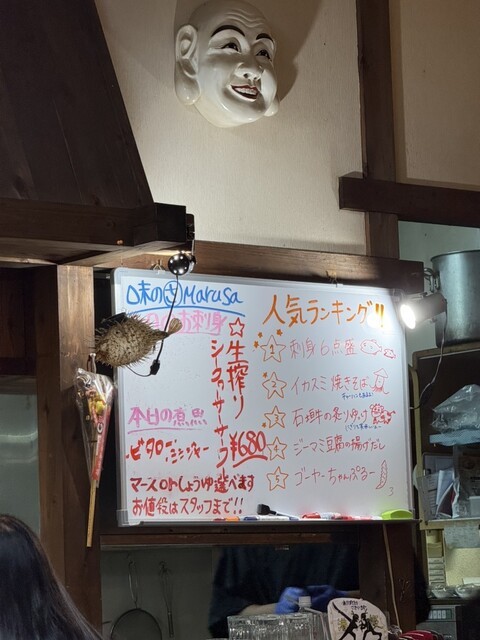 味の Marusa
お刺身
☆生搾り
シークワーサーサワー
¥680
本日の煮魚
・ビタロー
マース or しょうゆ選べます
お値段はスタッフまで!!
人気ランキング!!
1 刺身6点盛
2 イカスミ焼きそば
3 石垣牛の炙り
4 ジーマミ豆腐の揚げだし
5 ゴーヤーちゃんぷるー